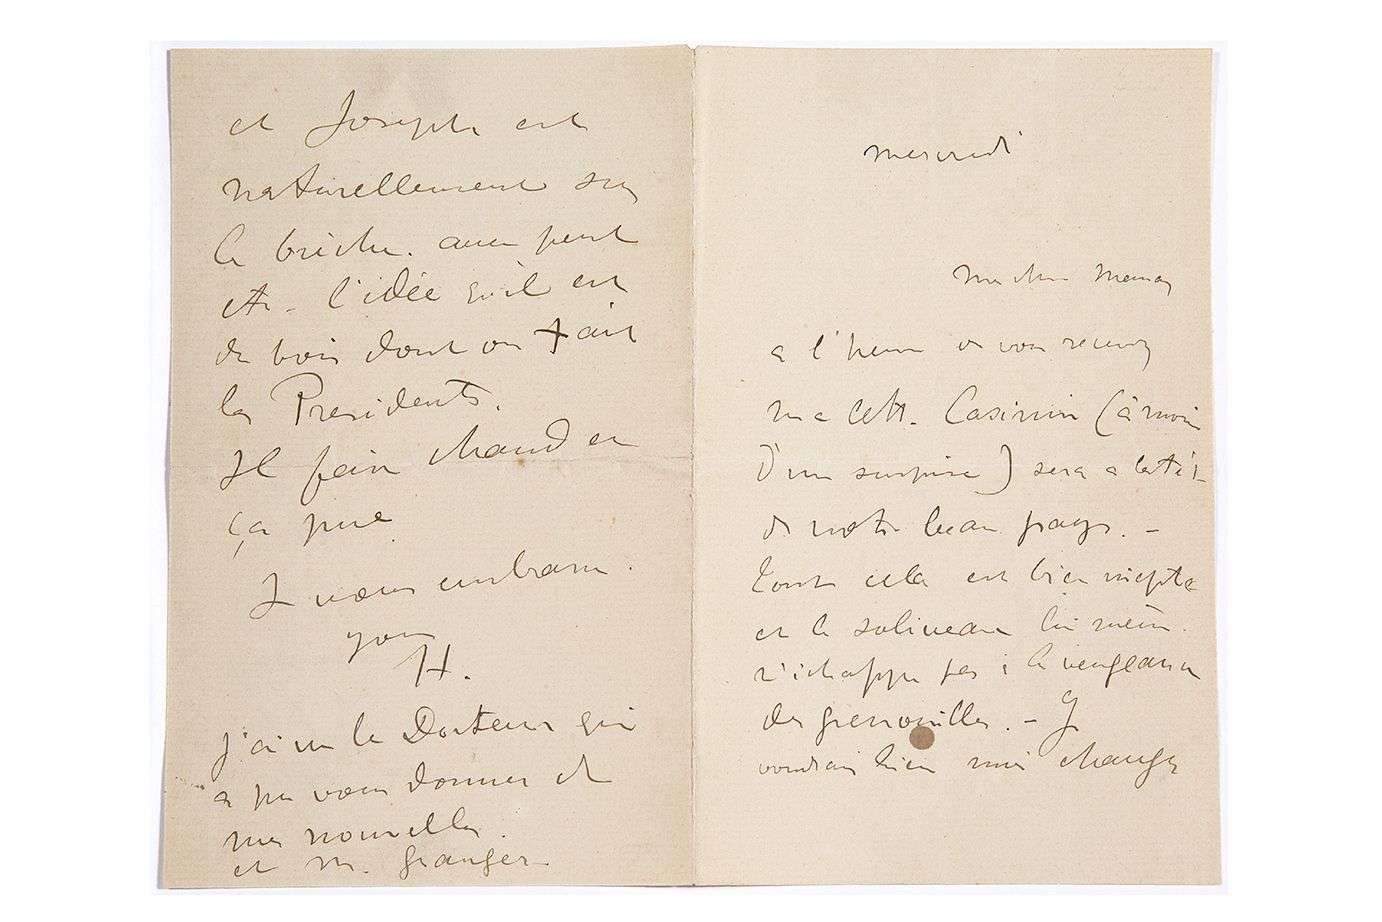 mercredi
Ma chère Maman
a l'heure où vous recevrez
ma lettre. Casimir (à moins
d'une surprise) sera a la tête
de notre beau pays. –
Tout cela est bien inepte
et le soliveau lui même
n'échappe pas à la vengeance
des grenouilles. – J
voudrais bien moi changer
et Joseph est
naturellement sur
la brèche. avec peut
etr. l'idée qu'il est
du bois dont on fait
les Presidents.
Il fait chaud et
ça pue
Je vous embrasse.
yours
H.
j'ai vu le Docteur qui
a pu vous donner de
mes nouvelles.
et M. Granger